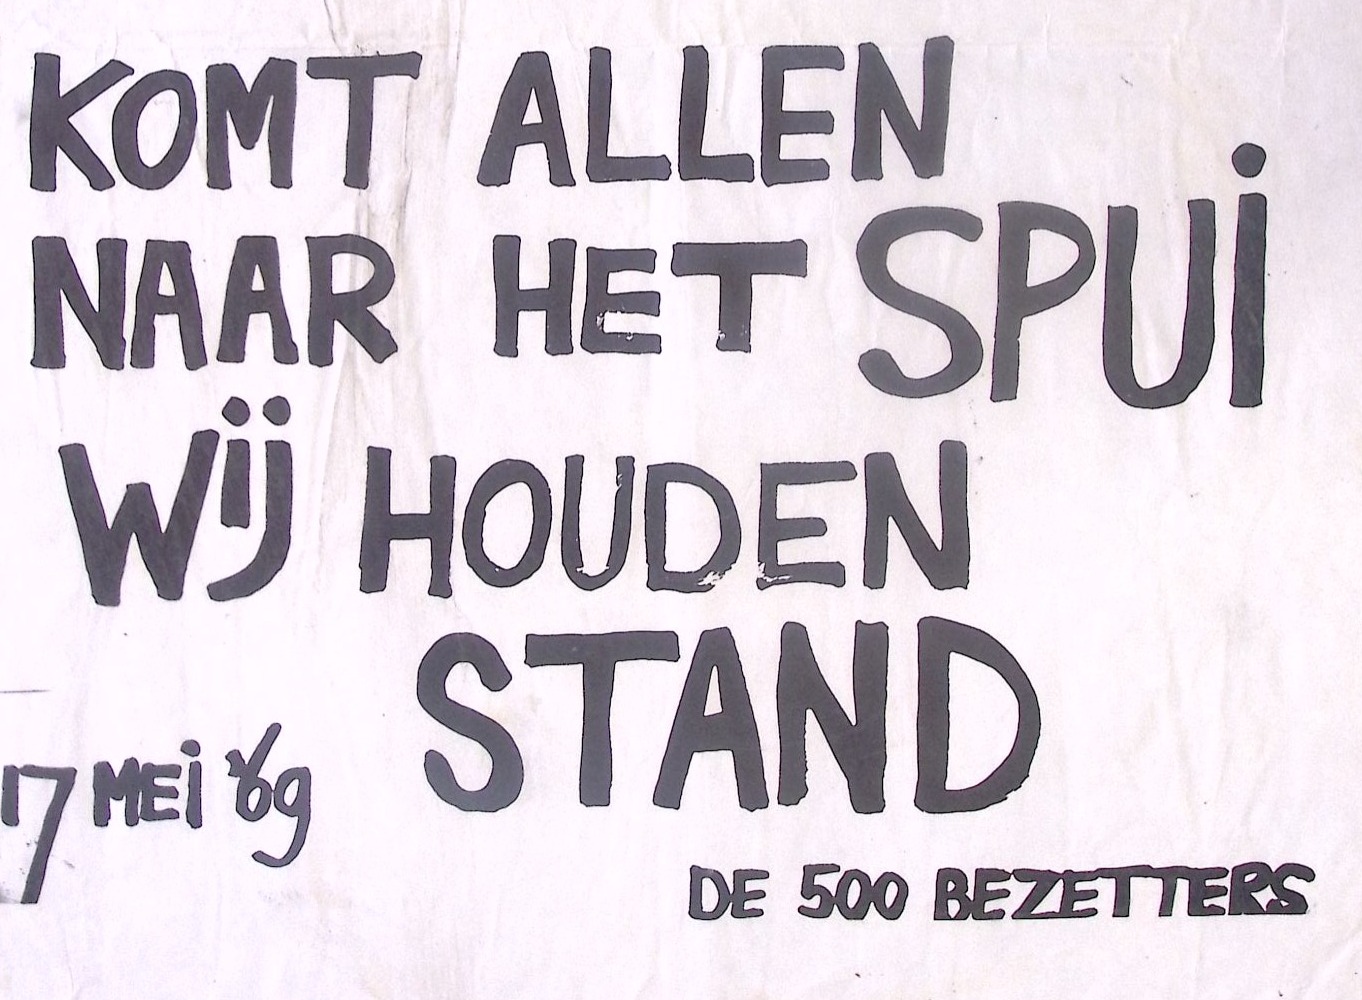 KOMT ALLEN
NAAR HET SPUi
Wij HOUDEN
STAND
17 MEi '69
DE 500 BEZETTERS